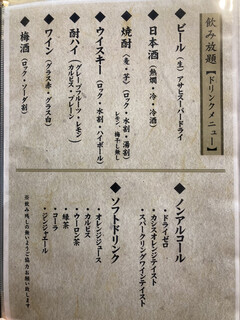 飲み放題【ドリンクメニュー】
◆ビール（生）アサヒスーパードライ
◆日本酒（熱燗・冷・冷酒）
◆焼酎（麦・芋）（ロック・水割・湯割）
レモン、梅干し無し
◆ウイスキー（ロック・水割・ハイボール）
◆酎ハイ（グレープフルーツ・レモン
カルピス・プレーン）
◆ワイン（グラス赤・グラス白）
◆梅酒（ロック・ソーダ割）
◆ノンアルコール
・ドライゼロ
・カシスオレンジテイスト
・スパークリングワインテイスト
◆ソフトドリンク
・オレンジジュース
・カルピス
・ウーロン茶
・緑茶
・コーラ
・ジンジャエール
※飲み残しの無いようご協力お願い致します